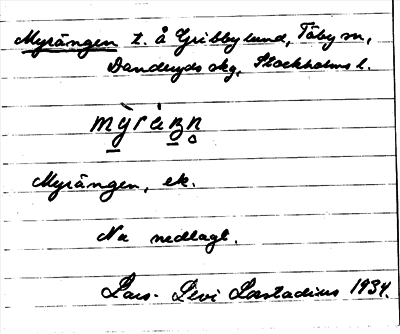 Myrängen t. å Gribbylund, Täby sn,
Danderyds skg, Stockholms l.
Myrängen, ek.
Nu nedlagt.
Lars-Levi Læstadius 1934.